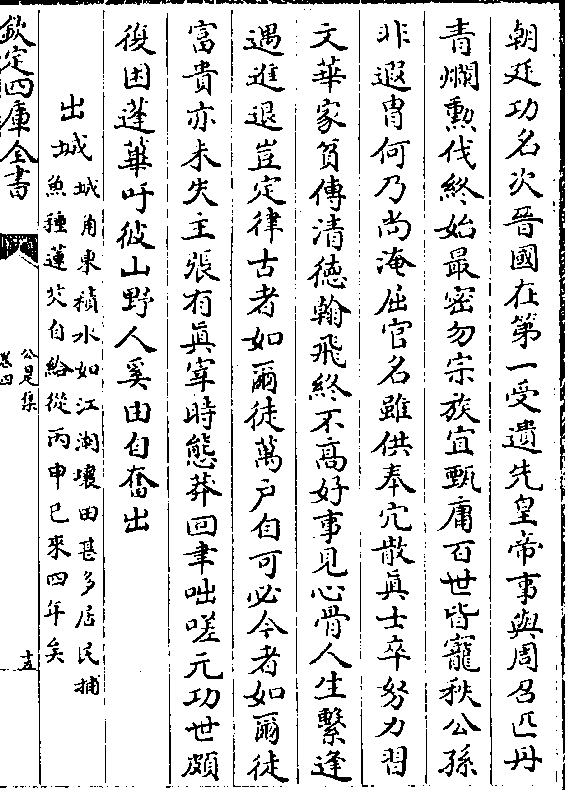 朝廷功名次晉國在第一受遺先皇帝事與周召匹丹
青爛勲伐終始最密勿宗族宜甄庸百世皆寵秩公孫
非遐胄何乃尚淹屈官名雖供奉冗散真士卒努力習
文華家貧傳清德翰飛終不高好事見心骨人生繫逢
遇進退豈定律古者如爾徒萬户自可必今者如爾徒
富貴亦未失主張有真宰時態莽回聿咄嗟元功世頗
復困蓬蓽吁彼山野人奚由自奮出
出城城角東積水如江湖壊田甚多居民捕
魚種蓮芡自給從丙申已來四年矣
欽定四庫全書
公是集
卷四
十五